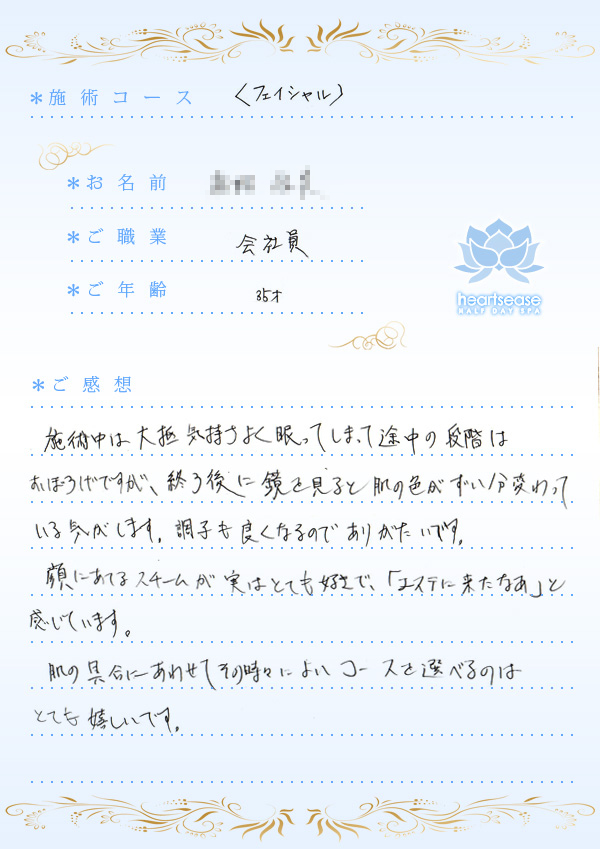 ＊施術コース 〈フェイシャル〉
＊お名前
＊ご職業 会社員
＊ご年齢 35才
heartsease
HALF DAY SPA
＊ご感想
施術中は大極気持ちよく眠ってしまって途中の段階は
おぼろげですが、終う後に鏡を見ると肌の色がずい分変わって
いる気がします。調子も良くなるのでありがたいです。
顔にあてるスチームが実はとても好きで、「エステに来たなあ」と
感じています。
肌の具合にあわせてその時々によいコースを選べるのは
とても嬉しいです。